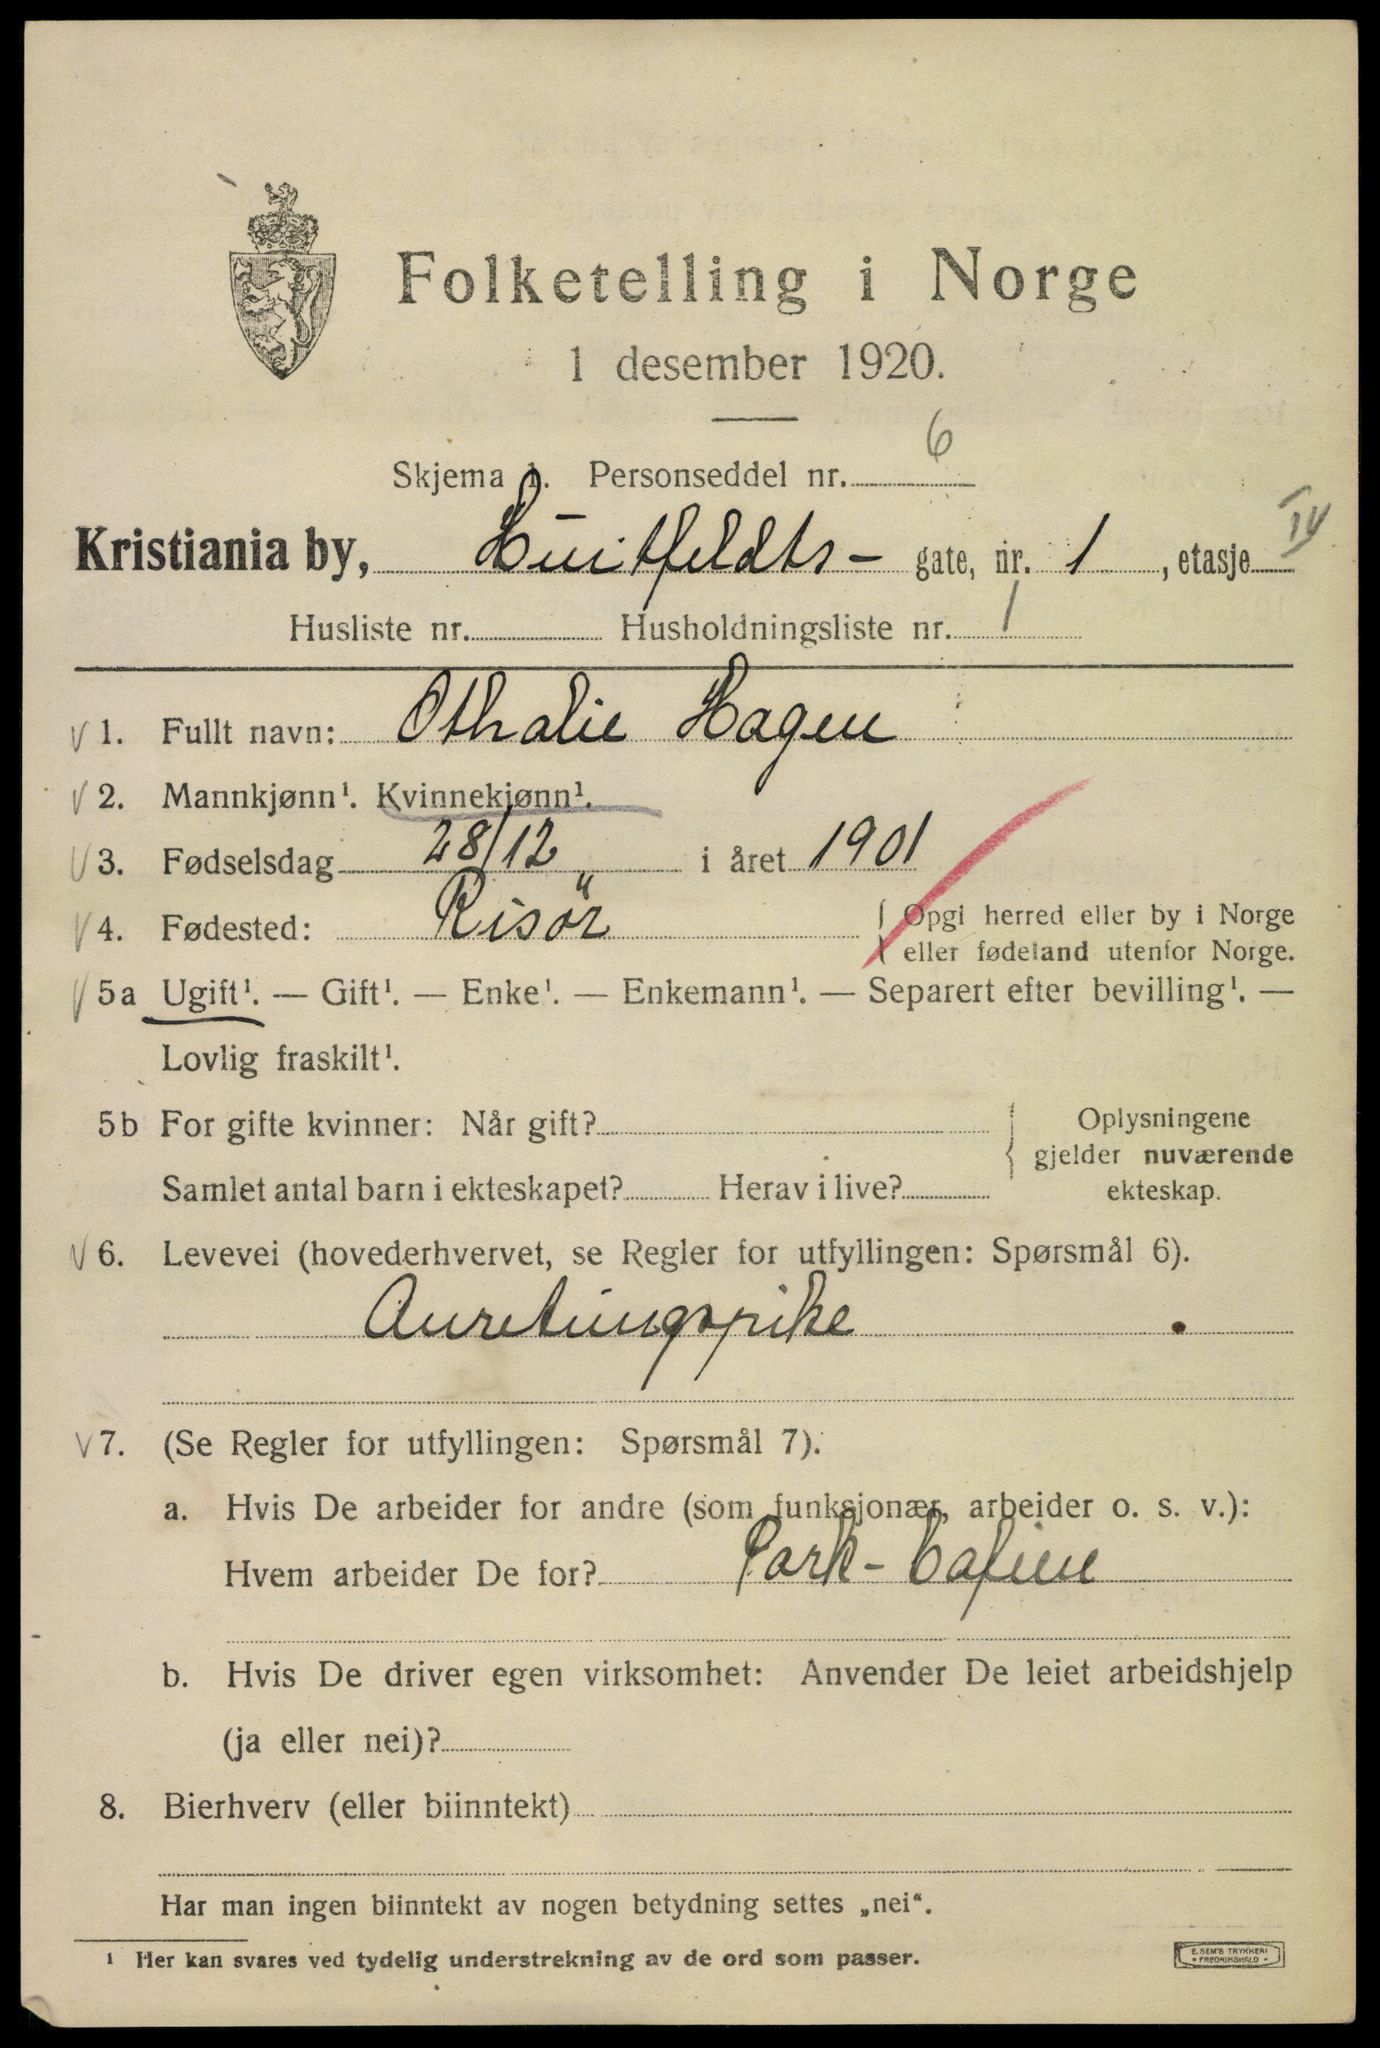 Folketelling i Norge
1 desember 1920.
Skjema 1. Personseddel nr. 6
Kristiania by, Huitfeldts- gate, nr. 1, etasje IV
Husliste nr. Husholdningsliste nr. 1
V 1. Fullt navn: Othalie Hagen
V 2. Mannkjønn¹. Kvinnekjønn¹.
V 3. Fødselsdag 28/12 i året 1901
V 4. Fødested: Risör { Opgi herred eller by i Norge
eller fødeland utenfor Norge.
V 5a Ugift¹. — Gift¹. — Enke¹. — Enkemann¹. — Separert efter bevilling¹. —
Lovlig fraskilt¹.
5b For gifte kvinner: Når gift?
Samlet antal barn i ekteskapet? Herav i live?
Oplysningene
gjelder nuværende
ekteskap.
V 6. Levevei (hovederhvervet, se Regler for utfyllingen: Spørsmål 6).
Anretningspike
V 7. (Se Regler for utfyllingen: Spørsmål 7).
a. Hvis De arbeider for andre (som funksjonær, arbeider o. s. v.):
Hvem arbeider De for? Park-Cafeen
b. Hvis De driver egen virksomhet: Anvender De leiet arbeidshjelp
(ja eller nei)?
8. Bierhverv (eller biinntekt)
Har man ingen biinntekt av nogen betydning settes „nei“.
¹ Her kan svares ved tydelig understrekning av de ord som passer.
E. SEM'S TRYKKERI
* FREDRIKSHALD *